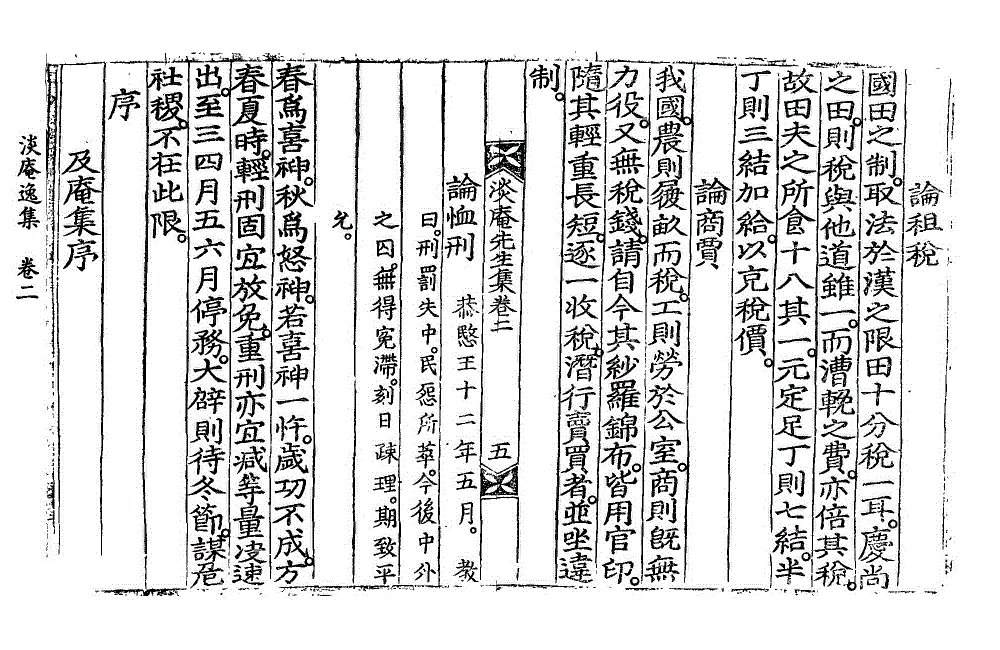 論租稅
國田之制。取法於漢之限田十分稅一耳。慶尚
之田。則稅與他道雖一。而漕輓之費。亦倍其稅。
故田夫之所食十八其一。元定足丁則七結。半
丁則三結加給。以充稅價。
論商賈
我國。農則履畝而稅。工則勞於公室。商則旣無
力役。又無稅錢。請自今其紗羅錦布。皆用官印。
隨其輕重長短。逐一收稅。潛行賣買者。並坐違
制。
淡庵先生集卷二 五
論恤刑 恭愍王十二年五月。敎
曰。刑罰失中。民怨所萃。今後中外
之囚。無得冤滯。刻日疎理。期致平
允。
春爲喜神。秋爲怒神。若喜神一忤。歲功不成。方
春夏時。輕刑固宜放免。重刑亦宜减等量決速
出。至三四月五六月停務。大辟則待冬節。謀危
社稷。不在此限。
序
及庵集序
淡庵逸集 卷二